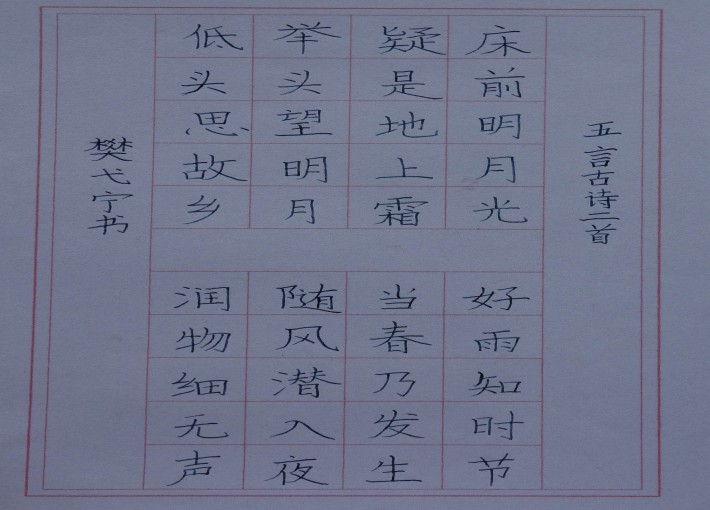 五言古诗二首
床前明月光
疑是地上霜
举头望明月
低头思故乡
好雨知时节
当春乃发生
随风潜入夜
润物细无声
樊弋宁书